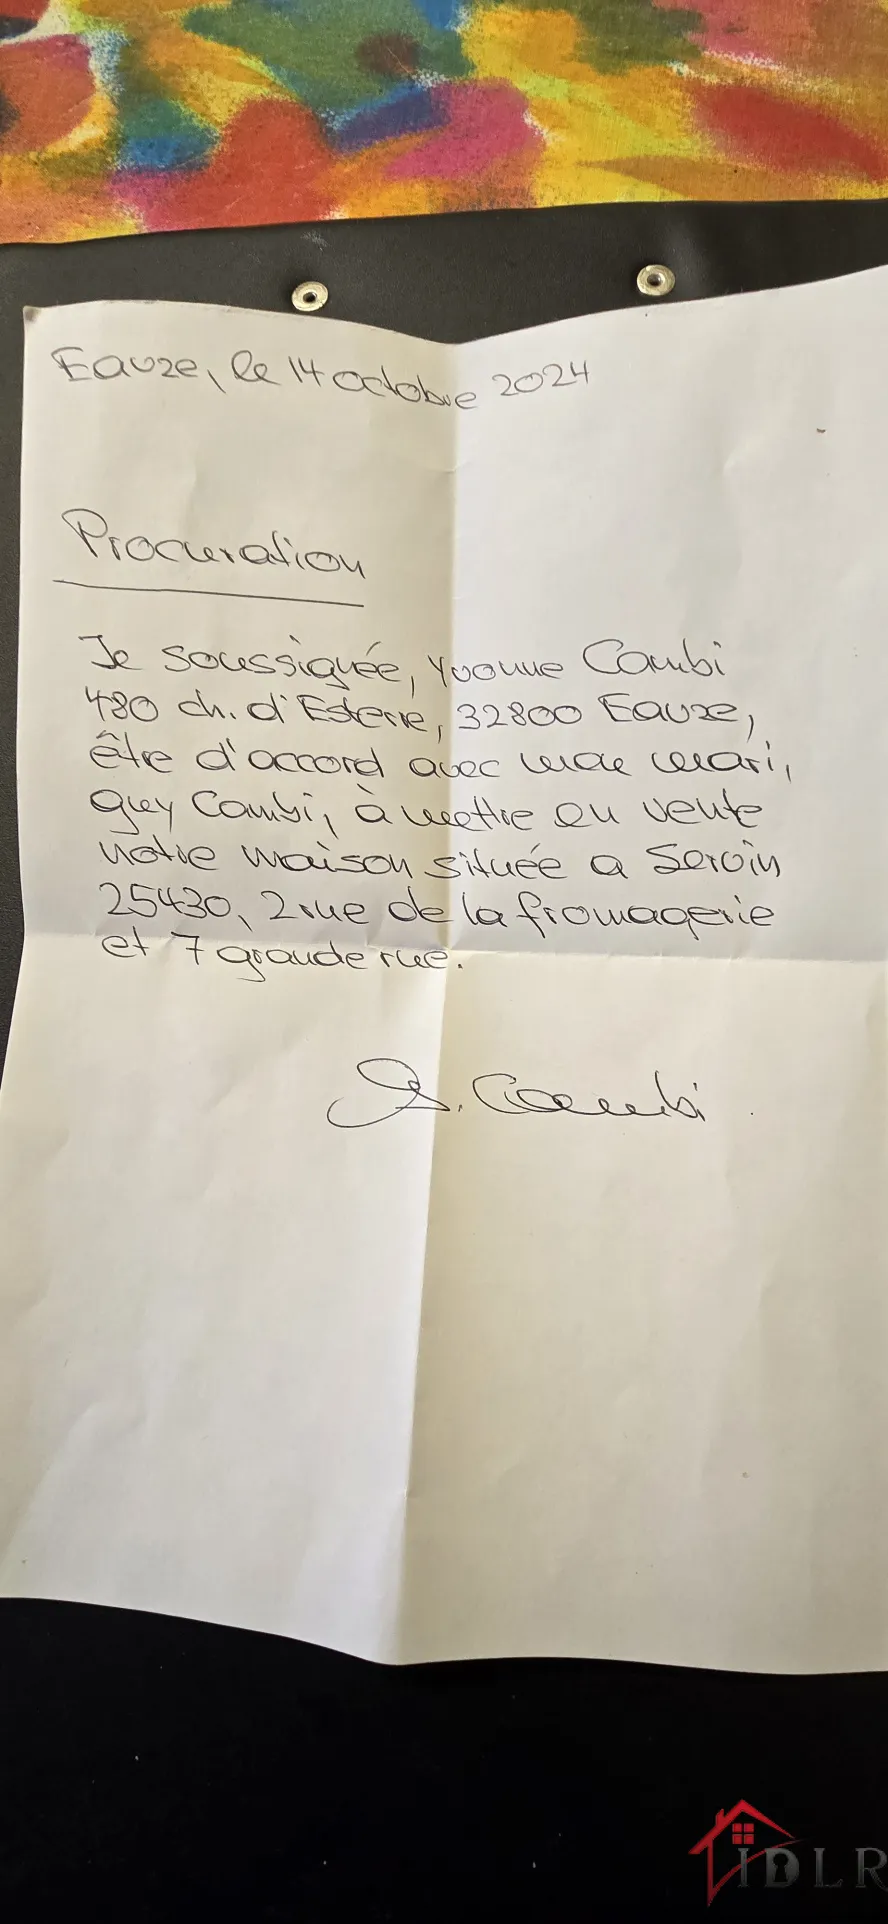 Eauze, le 14 octobre 2024
Procuration
Je soussignée, Yvonne Combi
480 ch. d'Esterre, 32800 Eauze,
être d'accord avec mon mari,
guy Combi, à mettre en vente
notre maison située a Servin
25430, 2 rue de la fromagerie
et 7 grande rue.
Combi
IDLR